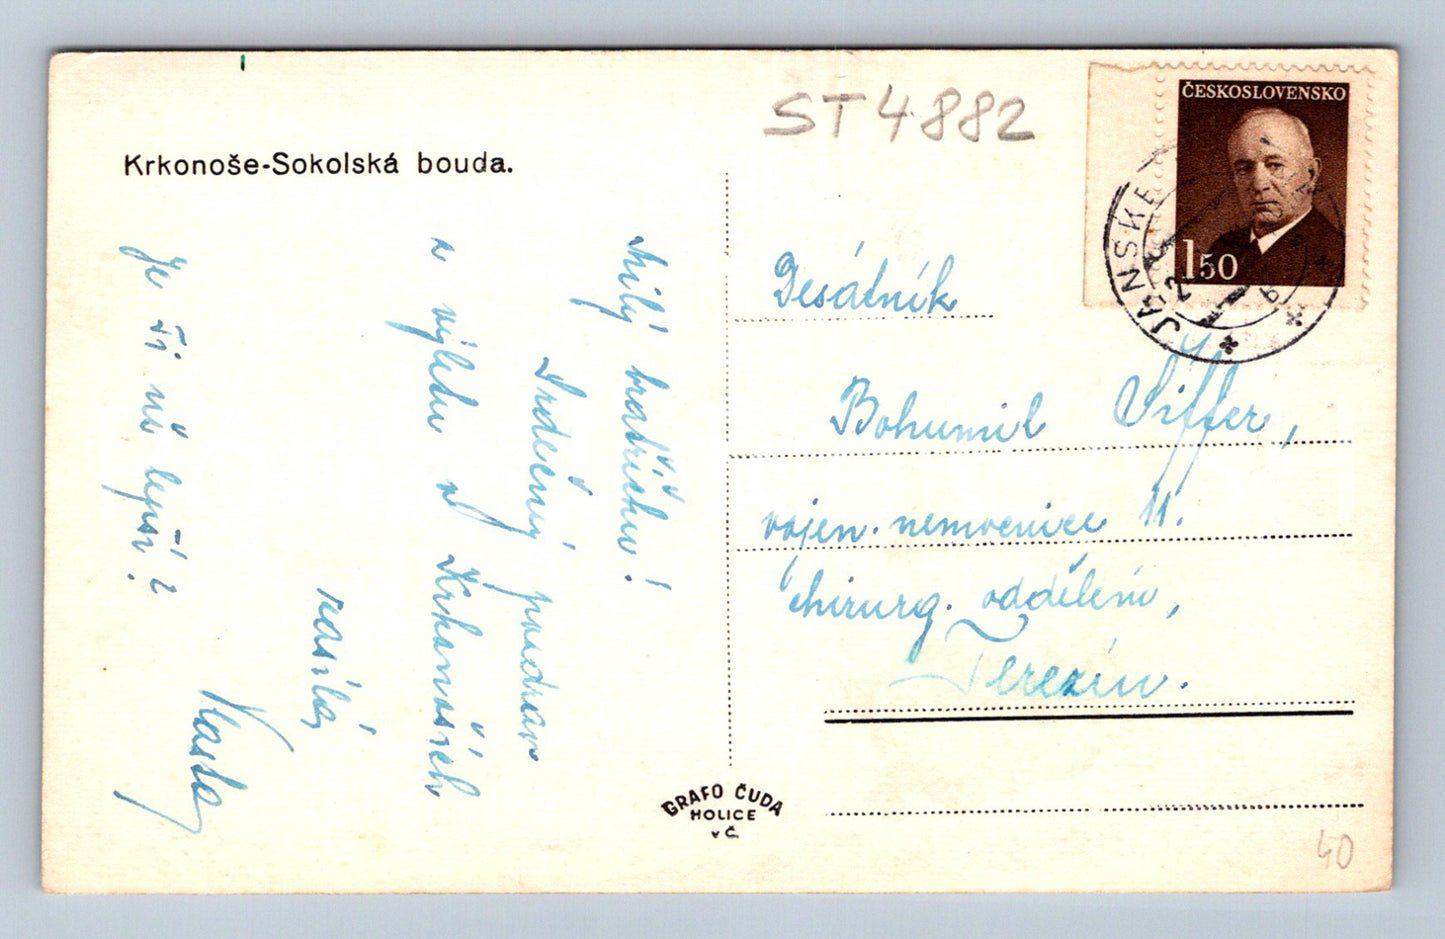 Krkonoše-Sokolská bouda.
ST 4882
ČESKOSLOVENSKO
1 50
JÁNSKÉ
Milý bratříčku!
Srdečný pozdrav
z výletu v Krkonoších
zasílá
Vlasta
Je Ti už lepší?
Desátník
Bohumil Šiffer,
vojen. nemocnice 11.
chirurg. oddělení,
Terezín.
GRAFO ČUDA
HOLICE
v Č.
40